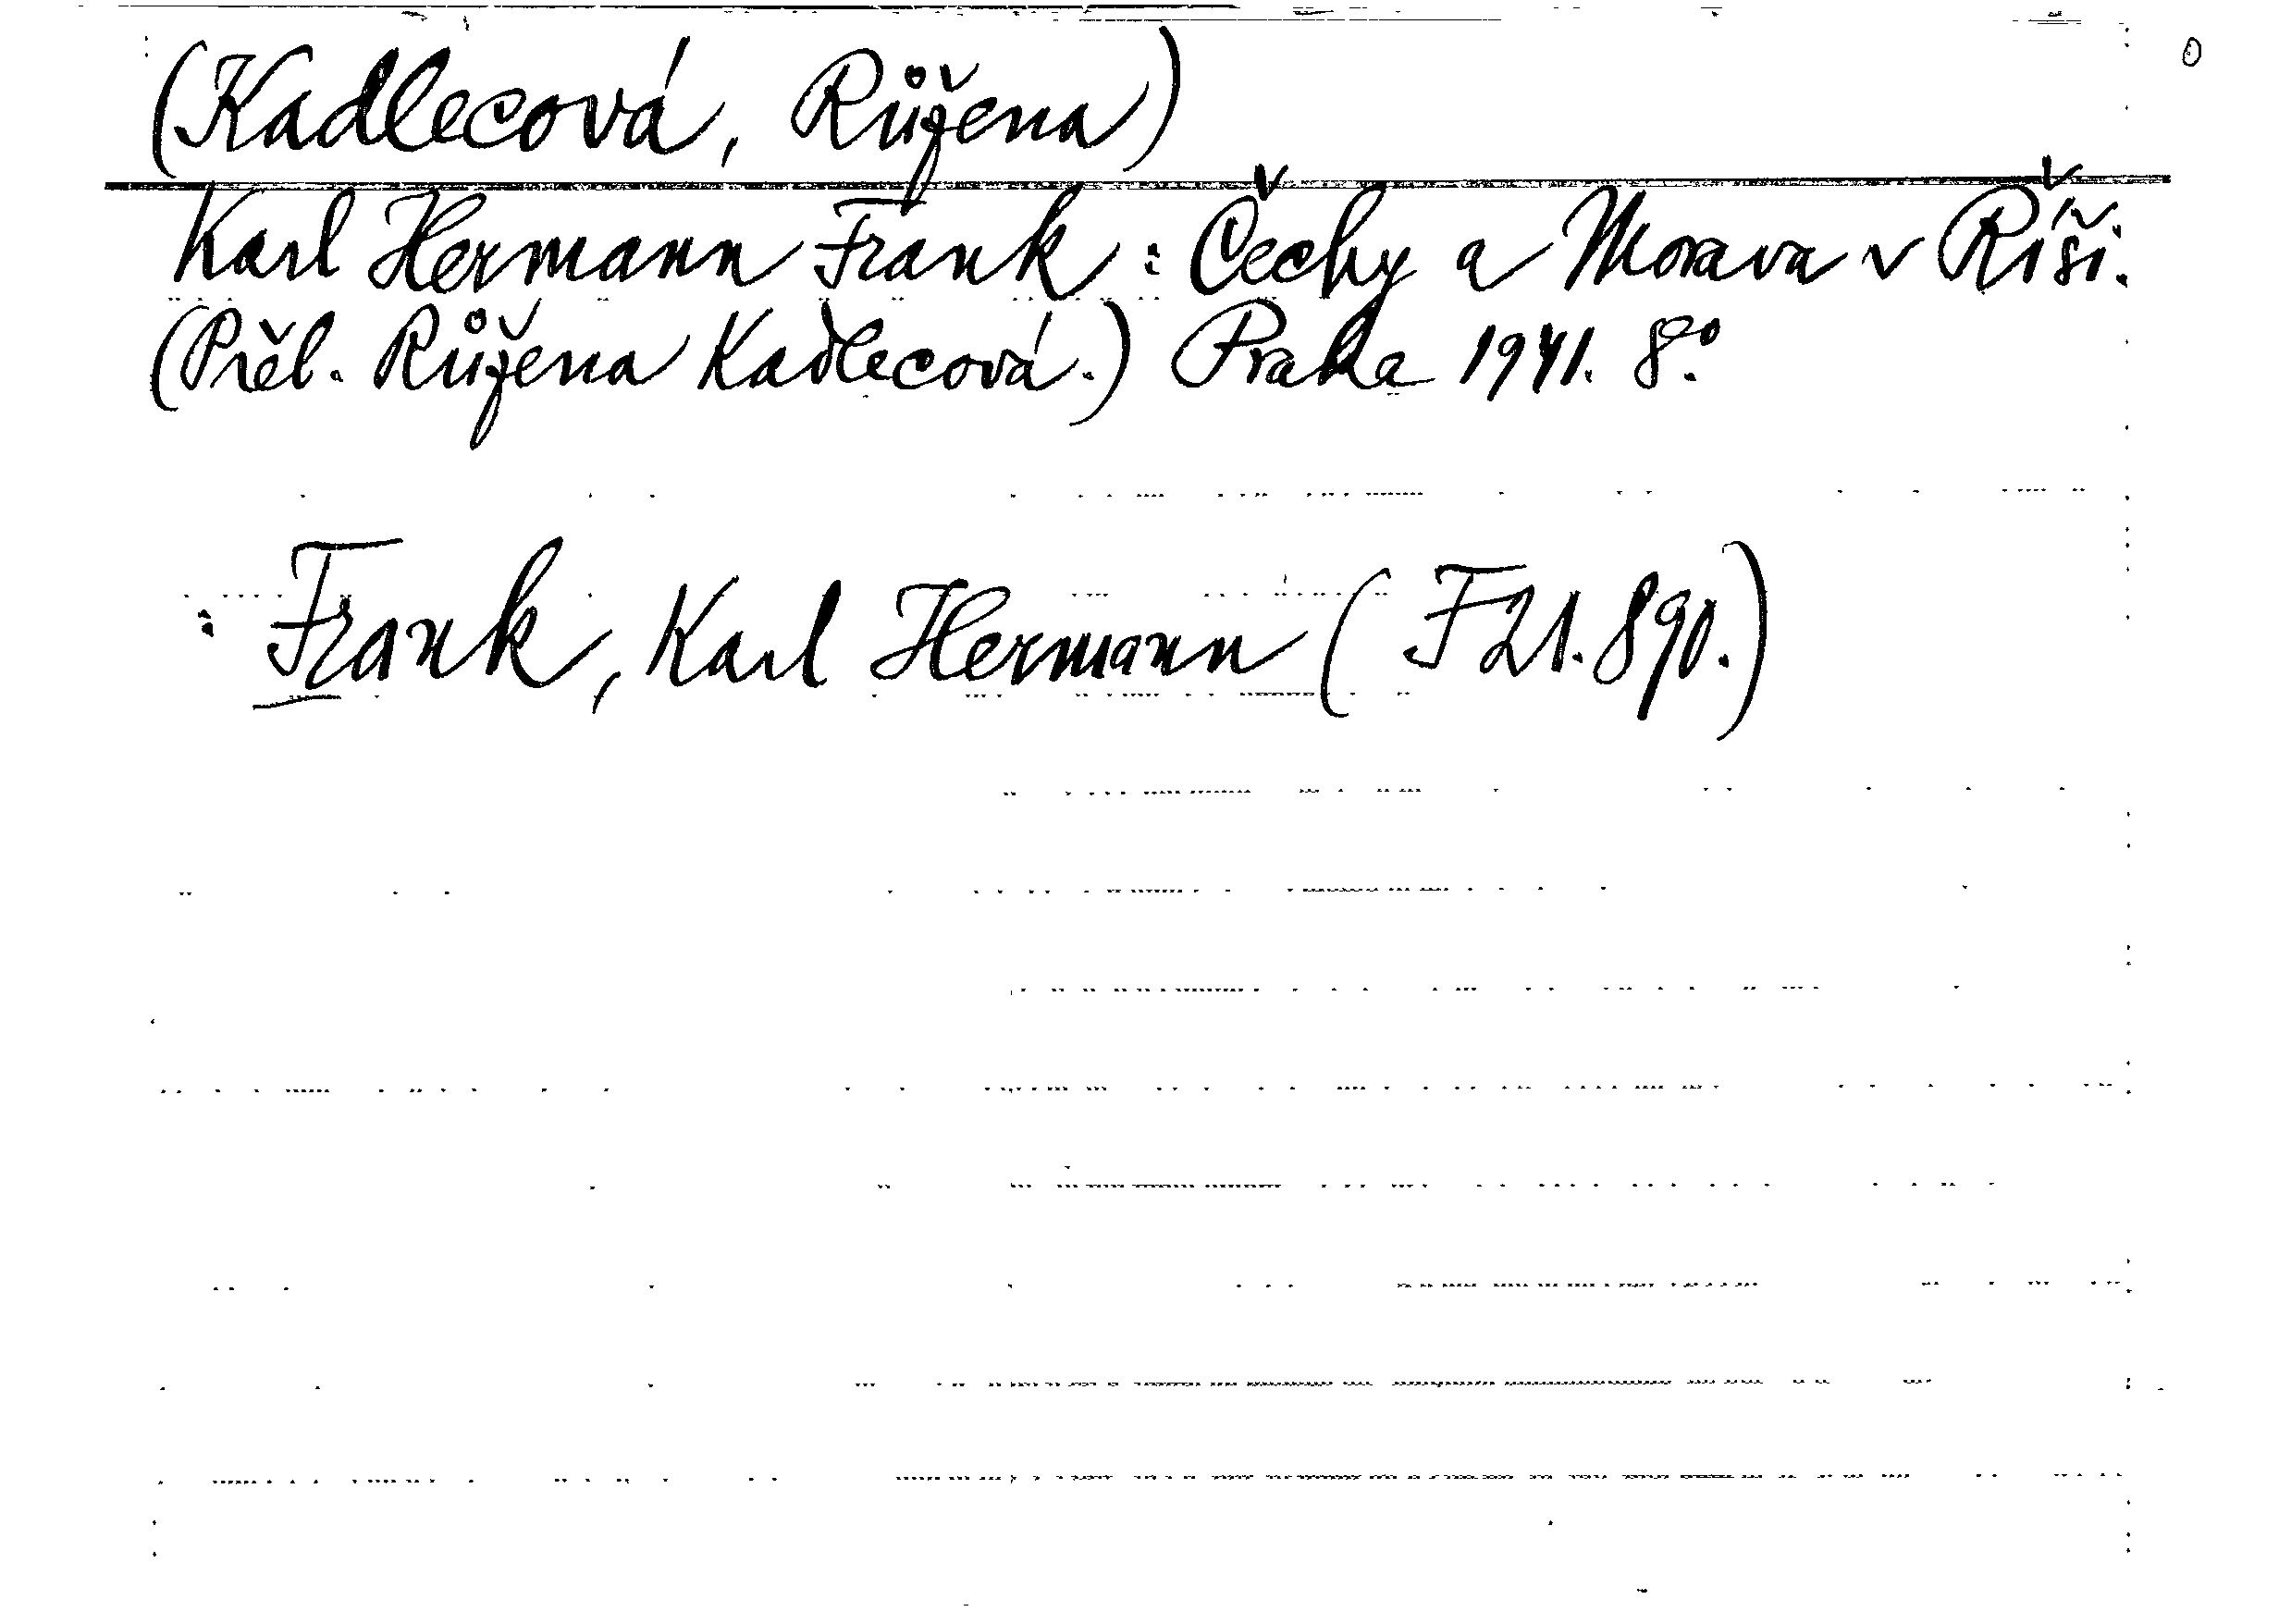 (Kadlecová, Růžena)
Karl Hermann Frank : Čechy a Morava v Říši.
(Přel. Růžena Kadlecová.) Praha 1941. 8°.
: Frank, Karl Hermann (F 21.890.)